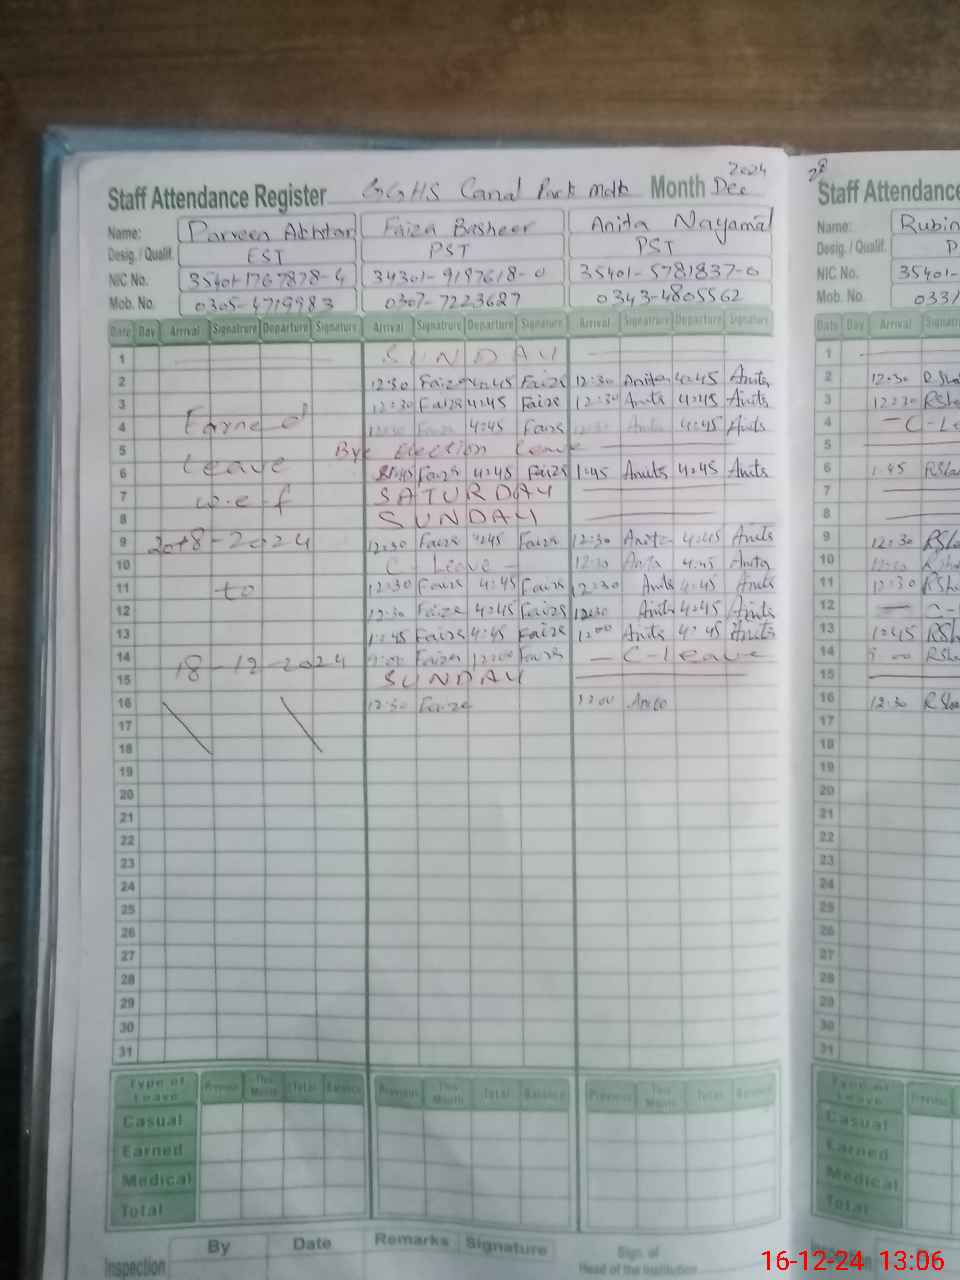 Staff Attendance Register GGHS Canal Park mdk Month Dec 2024
Name: Parveen Akhtar Faiza Basheer Anita Nayamal
Desig. / Qualif. EST PST PST
NIC No. 34301-9197618-0 35401-5781837-0
Mob. No. 0305-4719983 0307-7223627 0343-4805562
Date Day Arrival Signatrure Departure Signature Arrival Signatrure Departure Signature Arrival Signatrure Departure Signature
1 SUNDAY
2 12:30 Faiza 4:45 Faiza 12:30 Anita 4:45 Anita
3 12:30 Faiza 4:45 Faiza 12:30 Anita 4:45 Anita
4 Earned 4:45 Faiza 4:45 Anita
5 Bye Election Leave
6 Leave 1:45 Faiza 4:45 Faiza 1:45 Anita 4:45 Anita
7 w.e.f SATURDAY
8 SUNDAY
9 12:30 Faiza 4:45 Faiza 12:30 Anita 4:45 Anita
10 C-Leave 12:30 Anita 4:45 Anita
11 to 12:30 Faiza 4:45 Faiza 12:30 Anita 4:45 Anita
12 12:30 Faiza 4:45 Faiza 12:30 Anita 4:45 Anita
13 1:45 Faiza 4:45 Faiza Anita 4:45 Anita
14 18-12-2024 9:00 Faiza 12:00 Faiza C-Leave
15 SUNDAY
16 12:30 Faiza 12:00 Anita
17
18
19
20
21
22
23
24
25
26
27
28
29
30
31
Type of Leave Previous This Month Total Balance Previous This Month Total Balance Previous This Month Total Balance
Casual
Earned
Medical
Total
Inspection By Date Remarks Signature Sign. of Head of the Institution
28
Staff Attendance
Name: Rubin
Desig. / Qualif. P
NIC No. 35401-
Mob. No. 033
Date Day Arrival
1
2 12:30
3 12:30
4 -C-Le
5
6 1:45
7
8
9 12:30
10
11 12:30
12 C-
13 1:45
14
15
16 12:30
17
18
19
20
21
22
23
24
25
26
27
28
29
30
31
Type of Leave Previous
Casual
Earned
Medical
Total
16-12-24 13:06